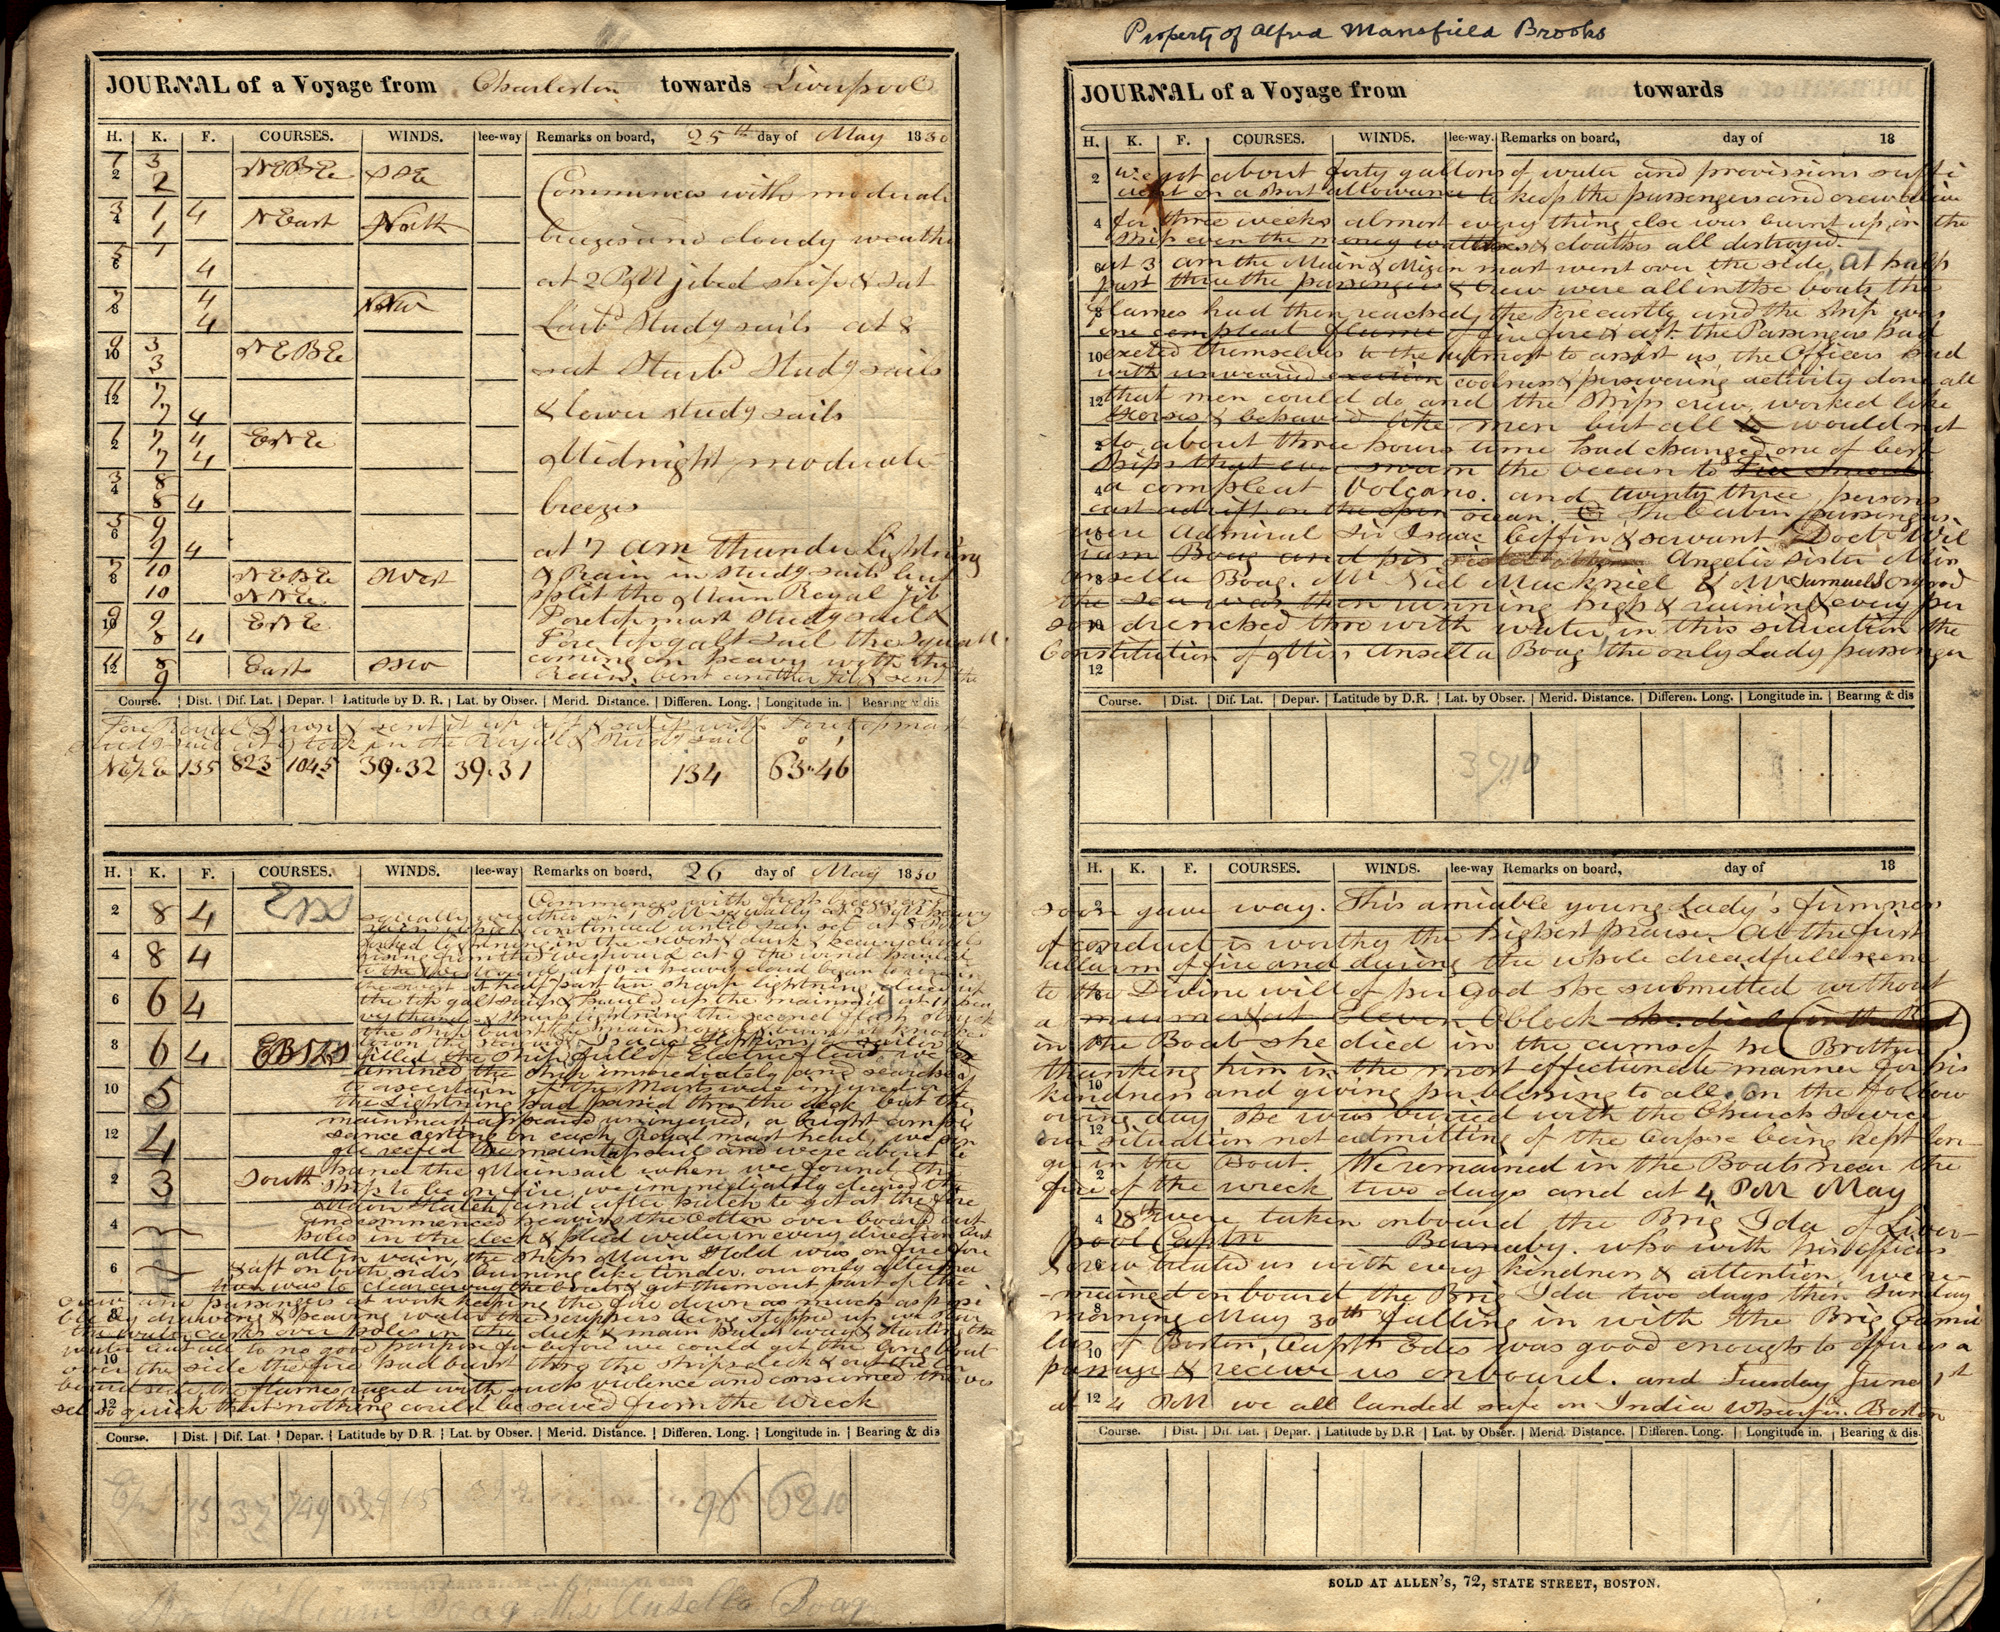 JOURNAL of a Voyage from Charleston towards Liverpool
H. K. F. COURSES. WINDS. lee-way Remarks on board, 25th day of May 1830
1 3 NEBE SSE
2 2
Commences with moderate
3 1 4 N East North
4 1
breezes and cloudy weather
5 1
6 4
at 2 PM jibed ship & sat
7 4 NNW
8 4
Larbd Studg sails at 8
9 3 NEBE
10 3
sat Starbd Studg sails
11 7
12 7 4
& lower studg sails
1 7 4 ENE
2 7 4
Midnight moderate
3 8
4 8 4
breezes
5 9
6 9 4
at 7 am thunder Lightning
7 10 NEBE SWest
& Rain in studg sails but
8 10 NNE
split the Main Royal Jib
9 9 ENE
Foretopmast Studg sail &
10 8 4
Fore top galt sail the squall
11 8 East SSW
coming on heavy with the
12 9
Rain, bent another jib & sent the
Course. Dist. Dif. Lat. Depar. Latitude by D. R. Lat. by Obser. Merid. Distance. Differen. Long. Longitude in. Bearing & dis
Fore Royal down & sent it up aft & sail with Foretopmast
studg sail took in the Royal & Studg sail
135 823 1045 39.32 39.31 134 63.46
H. K. F. COURSES. WINDS. lee-way Remarks on board, 26 day of May 1830
2 8 4
4 8 4
6 6 4
8 6 4 EBS
10 5
12 4
2 3 South
4
6
8
10
12
Commences with fresh breezes and
squally weather at 1 PM squally at 2 heavy
rain which continued until sun set at 8
forked lightning in the SWest & dark & heavy clouds
rising from the westward at 9 the wind hauled
to the westward, at 10 a heavy cloud began to rise in
the SWest at half past ten sharp lightning, clued up
the top galt sails & hauled up the mainsail, at 11 hea
vy thunder & sharp lightning the second flash struck
the ship burst the main royal & knocked
down the steward & Isaac Hopkins a sailor &
filled the ship full of Electric fluid, we ex
amined the ship immediately and searched
to ascertain if the Masts were injured or if
the Lightning had passed thro the deck but the
mainmast appeared uninjured, a bright compo
sance resting on each Royal mast head, we sin
gle reefed the maintopsail and were about to
hand the Mainsail when we found the
ship to be on fire, we immediatly cleared the
Main Hatch and after hatch to get at the fire
and commenced heaving the Cotton over board cut
holes in the deck & plied water in every direction but
all in vain, the ships Main Hold was on fire fore
& aft on both sides burning like tinder. our only alterna
tive was to clear away the boats & get them out part of the
crew and passengers at work keeping the fire down as much as possi
ble by drawing & heaving water the scuppers being stopped up we hove
the water casks over holes in the deck & main hatch way & starting the
water but all to no good purpose for before we could get the long boat
over the side the fire had burst thro the ships deck & out the lar
board side, the flames raged with such violence and consumed the ves
sel so quick that nothing could be saved from the Wreck
Course. Dist. Dif. Lat. Depar. Latitude by D R. Lat. by Obser. Merid. Distance. Differen. Long. Longitude in. Bearing & dis
96 62 10
William Boag Ms Ansella Boag
Property of Alfred Mansfield Brooks
JOURNAL of a Voyage from towards
H. K. F. COURSES. WINDS. lee-way. Remarks on board, day of 18
we got about forty gallons of water and provisions suffi
cient on a short allowance to keep the passengers and crew alive
for three weeks almost every thing else was burnt up in the
ship even the money watches & cloathes all distroyed.
at 3 am the Main & Mizen mast went over the side, at half
past three the passengers & crew were all in the boats the
flames had then reached the Forecastle and the ship was
one compleat flame of fire fore & aft. the Passengers had
exerted themselves to the utmost to assist us, the Officers had
with unwearied exertion coolness & persevering activity done all
that men could do and the ships crew, worked like
horses & behaved like men but all would not
do, about three hours time had changed one of best
ships that ever swam the ocean to
a compleat Volcano. and twenty three persons
cast adrift on the open ocean. The Cabin passengers
were Admiral Sir Isaac Coffin & servant Doct Wil
iam Boag and his Angelic sister Miss
Ansella Boag. Mr Niel Mackniel & Mr Samuel Osgood
the sea was then running high & raining & every per
son drenched thro with water, in this situation the
Constitution of Miss Ansella Boag the only Lady passenger
Course. Dist. Dif. Lat. Depar. Latitude by D.R. Lat. by Obser. Merid. Distance. Differen. Long. Longitude in. Bearing & dis
3910
H. K. F. COURSES. WINDS. lee-way Remarks on board, day of 18
soon gave way. This amiable young Lady's firmness
of conduct is worthy the highest praise. At the first
allarm of fire and during the whole dreadfull scene
to the Divine will of her God she submitted without
a murmer & at Eleven Oblock she died (in the Boat)
in the Boat she died in the arms of he (Brother)
thanking him in the most effectionate manner for his
kindness and giving her blessing to all. On the follow
owing day she was buried with the Church Service
our situation not admitting of the Corpse being kept lon-
ger in the Boat. We remained in the Boats near the
fire of the wreck two days and at 4 PM May
28th were taken onboard the Brig Ida of Liver-
pool Captn Barnaby. who with his officers
& crew treated us with every kindness & attention, we re-
-mained onboard the Brig Ida two days then Sunday
morning May 30th falling in with the Brig Camil
lus of Boston, Captn Edes was good enough to offer us a
passage & receive us onboard. and Tuesday June 1st
at 4 PM we all landed safe on India Wharf in Boston
Course. Dist. Dif. Lat. Depar. Latitude by D.R Lat. by Obser. Merid. Distance. Differen. Long. Longitude in. Bearing & dis.
SOLD AT ALLEN'S, 72, STATE STREET, BOSTON.